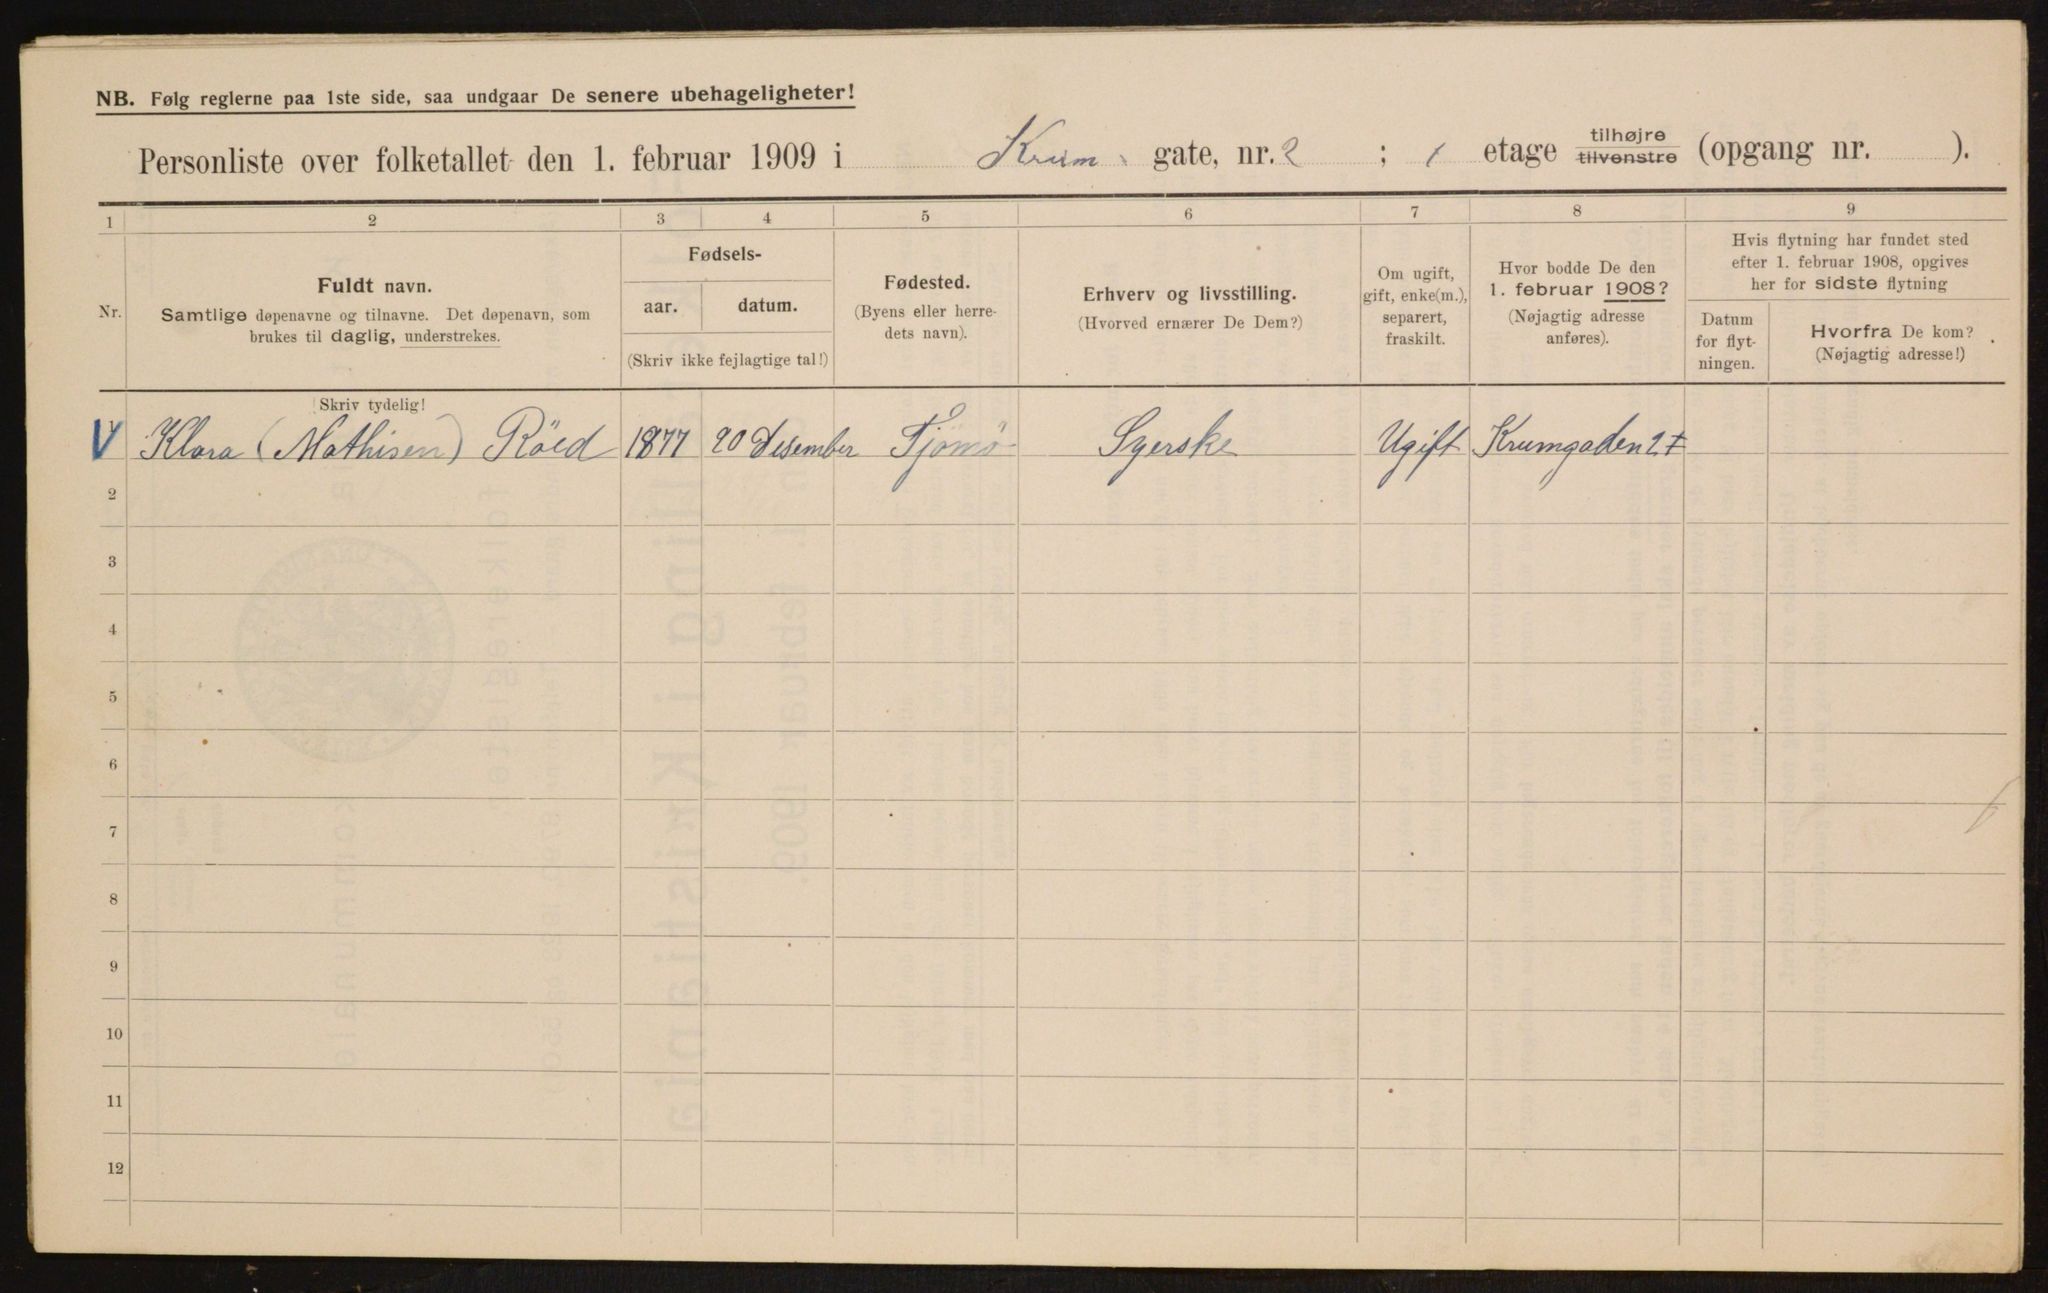 NB. Følg reglerne paa 1ste side, saa undgaar De senere ubehageligheter!
Personliste over folketallet den 1. februar 1909 i Krum- gate, nr. 2 ; 1 etage tilhøjre tilvenstre (opgang nr. ).
1 2 3 4 5 6 7 8 9
Nr.
Fuldt navn.
Samtlige døpenavne og tilnavne. Det døpenavn, som
brukes til daglig, understrekes.
Fødsels-
aar. datum.
(Skriv ikke fejlagtige tal!)
Fødested.
(Byens eller herre-
dets navn).
Erhverv og livsstilling.
(Hvorved ernærer De Dem?)
Om ugift,
gift, enke(m.),
separert,
fraskilt.
Hvor bodde De den
1. februar 1908?
(Nøjagtig adresse
anføres).
Hvis flytning har fundet sted
efter 1. februar 1908, opgives
her for sidste flytning
Datum
for flyt-
ningen.
Hvorfra De kom?
(Nøjagtig adresse!)
Skriv tydelig!
Klara (Mathisen) Röed 1877 20 Desember Tjömö Syerske Ugift Krumgaden 2 I
2
3
4
5
6
7
8
9
10
11
12